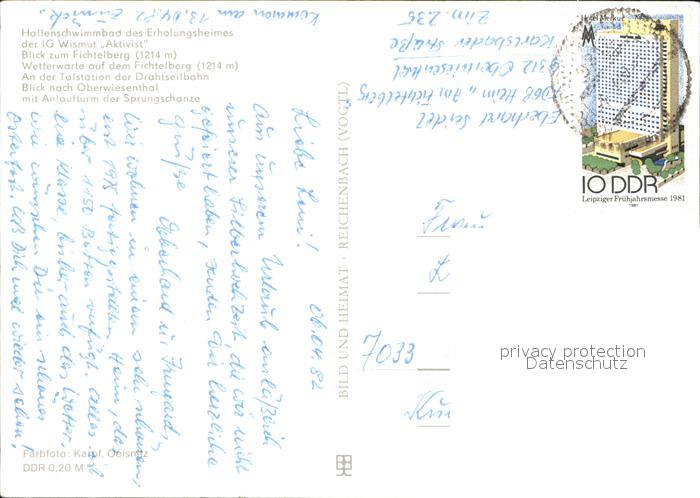 Hallenschwimmbad des Erholungsheimes
der IG Wismut „Aktivist"
Blick zum Fichtelberg (1214 m)
Wetterwarte auf dem Fichtelberg (1214 m)
An der Talstation der Drahtseilbahn
Blick nach Oberwiesenthal
mit Anlaufturm der Sprungschanze
Kommen am 13.04.82 zurück.
06.04.82
Liebe Leni!
Aus unserem Urlaub anläßlich
unserer Silberhochzeit, die wir nicht
gefeiert haben, senden Dir herzliche
Grüße Eberhard u. Irmgard,
Wir wohnen in einem sehr schönen,
erst 1978 fertiggestellten Heim, das
über 1150 Betten verfügt. Alles ist
eine Klasse, bisher auch das Wetter.
Wir wünschen Dir ein schönes
Osterfest. Laß Dich mal wieder sehen!
Farbfoto: Karpf, Oelsnitz
DDR 0,20 M
BILD UND HEIMAT · REICHENBACH (VOGTL)
Eberhard Seidel
FDGB Heim „Am Fichtelberg
9312 Oberwiesenthal
Karlsbader Straße
Zim. 235
Hotel Merkur
10 DDR
Leipziger Frühjahrsmesse 1981
1981
Frau
L
7033
privacy protection
Datenschutz